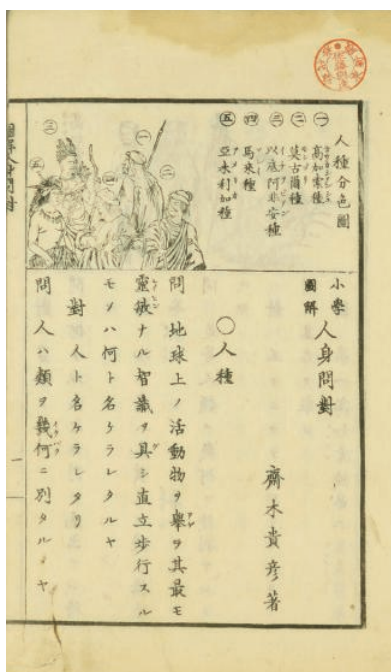 人種分色圖
㊀高加索種
㊁莫古爾種
㊂以底阿非安種
㊃馬来種
㊄亞米利加種
㊂
㊀
㊁
㊃
㊄
小學
圖解
人身問對
齋木貴彦著
〇人種
問 地球上ノ活動物ヲ擧ゲ其最モ
靈敏ナル智識ヲ具シ直立歩行スル
モノハ何ト名ケラレタルヤ
對 人ト名ケラレタリ
問 人ハ類ヲ幾何ニ別タルヽヤ
圖解人身問對
一